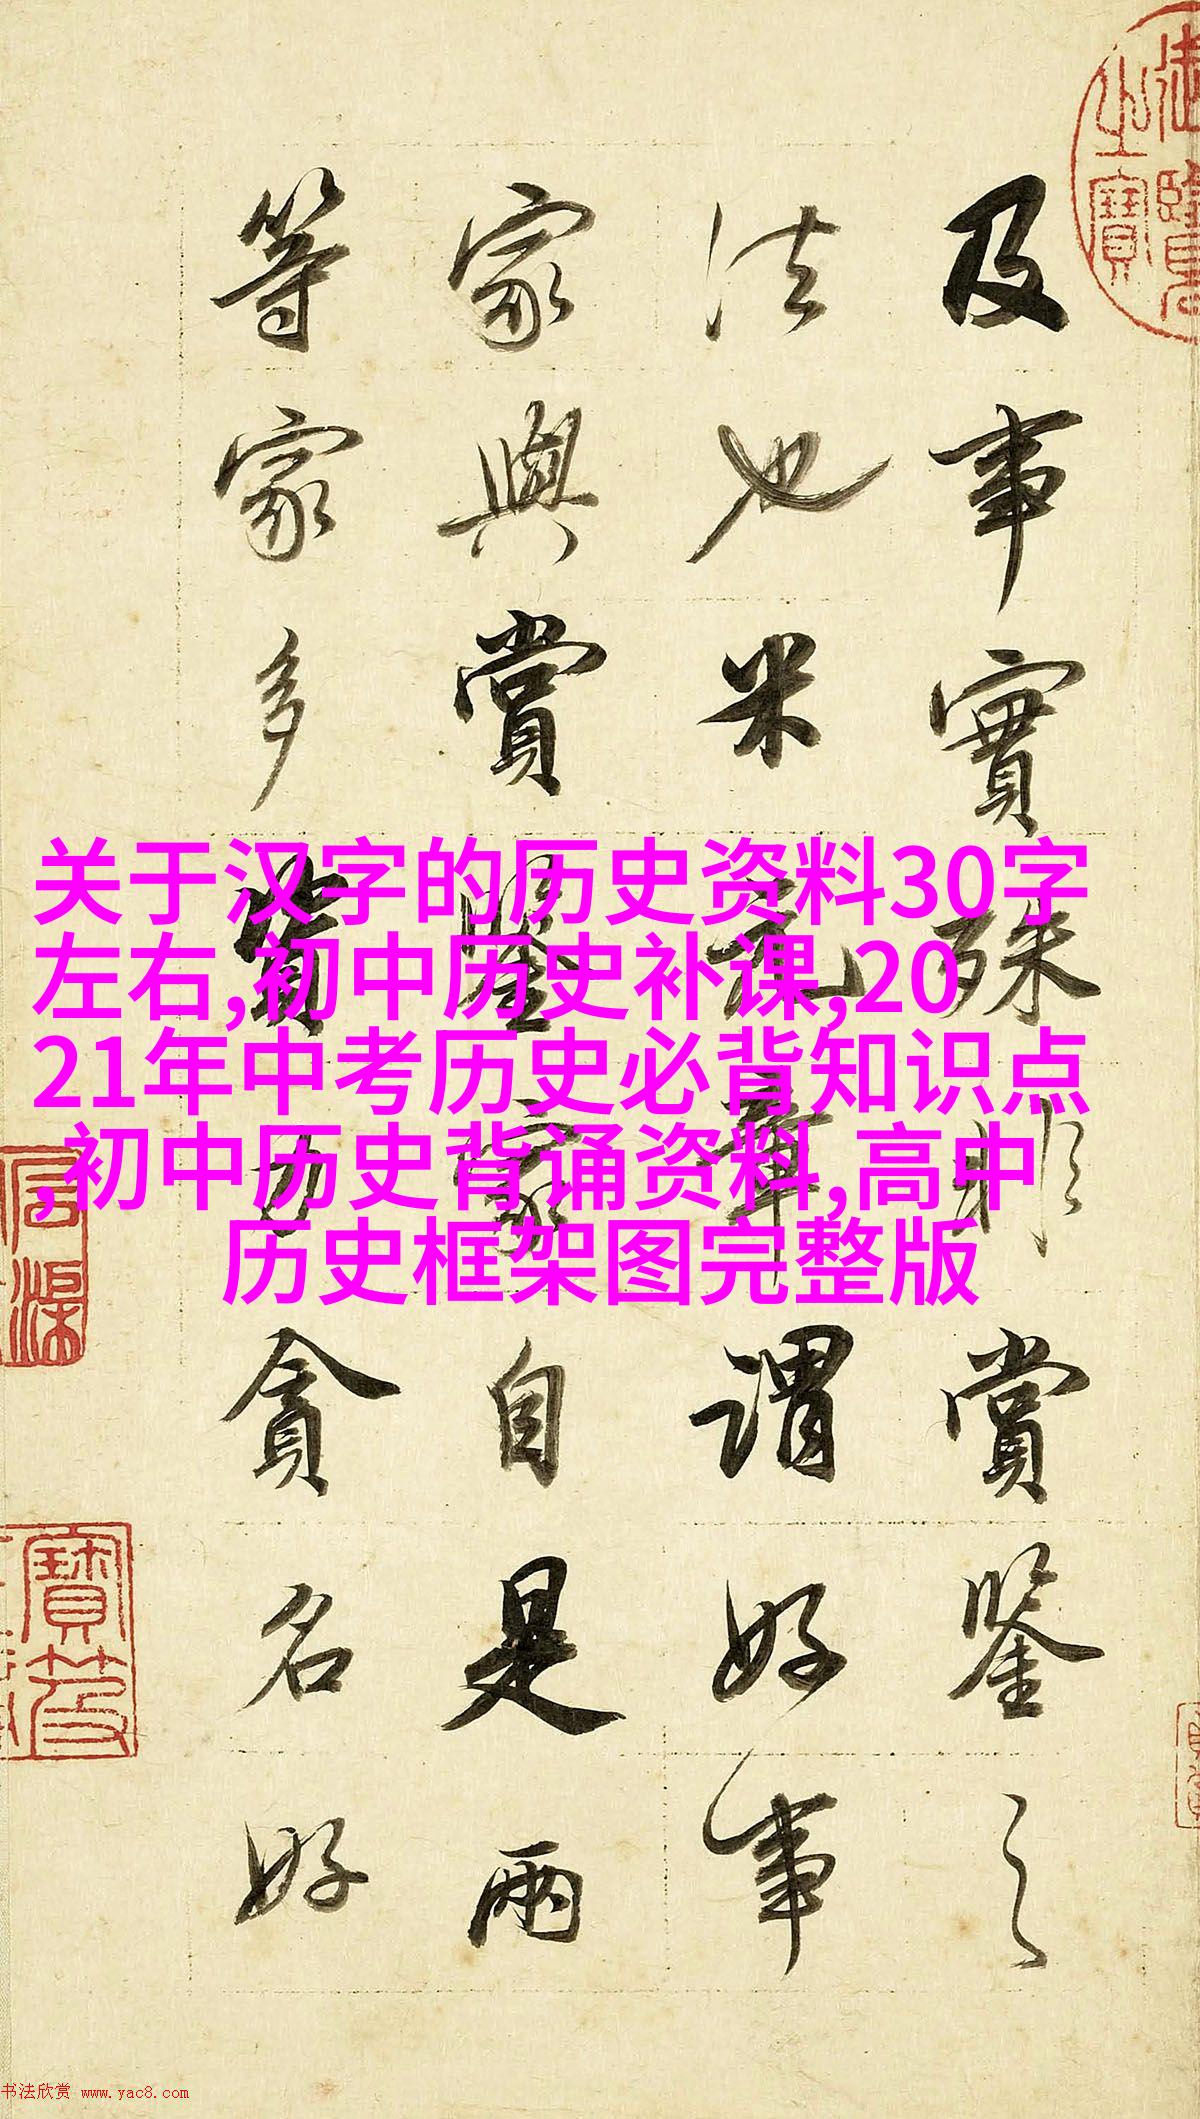 及事實殊非賞鑒之
法也米元章謂好事
家與賞鑒家自是兩
等家多資力貪名好
关于汉字的历史资料30字
左右,初中历史补课,20
21年中考历史必背知识点
,初中历史背诵资料,高中
历史框架图完整版
御覽之寶
书法欣赏 www.yac8.com